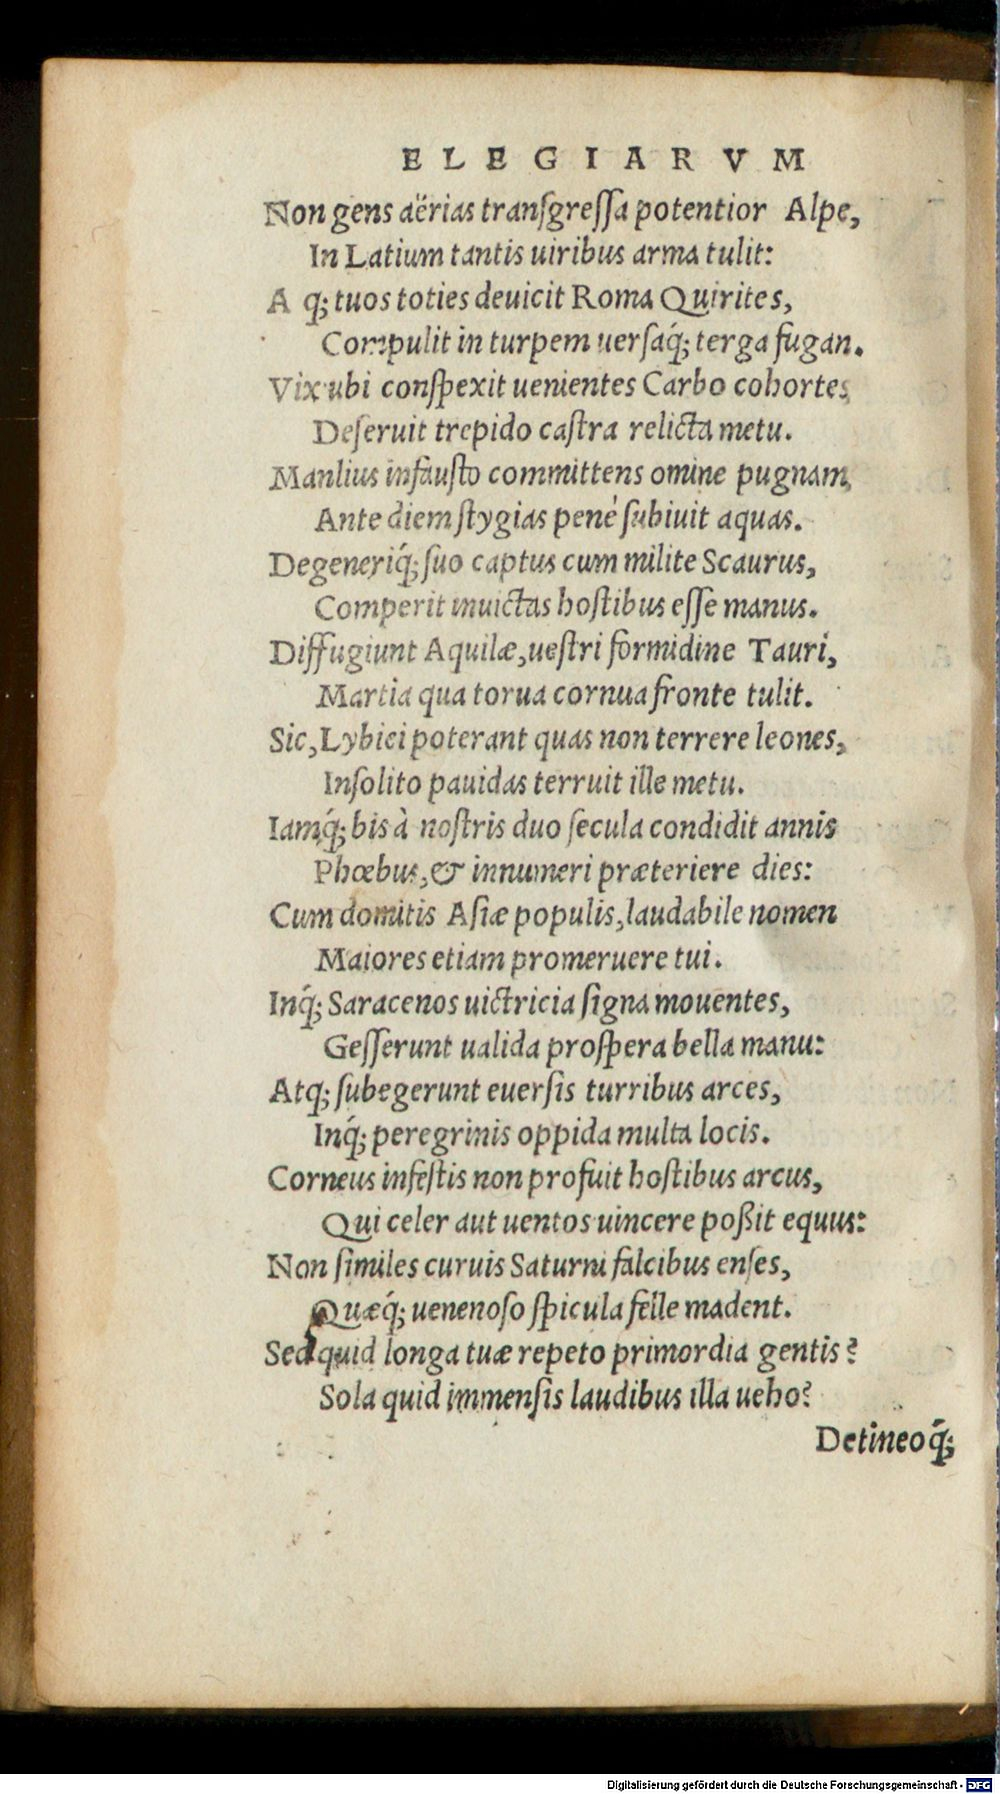 ELEGIARVM
Non gens aërias transgreſſa potentior Alpe,
In Latium tantis uiribus arma tulit:
A q; tuos toties deuicit Roma Quirites,
Compulit in turpem uerſaq́; terga fugan.
Vix ubi conſpexit uenientes Carbo cohortes,
Deſeruit trepido caſtra relicta metu.
Manlius infauſto committens omine pugnam,
Ante diem ſtygias penè ſubiuit aquas.
Degeneriq́; ſuo captus cum milite Scaurus,
Comperit inuictas hoſtibus eſſe manus.
Diffugiunt Aquilæ, ueſtri formidine Tauri,
Martia qua torua cornua fronte tulit.
Sic, Lybici poterant quas non terrere leones,
Inſolito pauidas terruit ille metu.
Iamq́; bis à noſtris duo ſecula condidit annis
Phœbus, & innumeri præteriere dies:
Cum domitis Aſiæ populis, laudabile nomen
Maiores etiam promeruere tui.
Inq́; Saracenos uictricia ſigna mouentes,
Geſſerunt ualida proſpera bella manu:
Atq; ſubegerunt euerſis turribus arces,
Inq́; peregrinis oppida multa locis.
Corneus infeſtis non profuit hoſtibus arcus,
Qui celer aut uentos uincere poßit equus:
Non ſimiles curuis Saturni falcibus enſes,
Quæq́; uenenoſo ſpicula felle madent.
Sed quid longa tuæ repeto primordia gentis?
Sola quid immenſis laudibus illa ueho?
Detineoq́;
Digitalisierung gefördert durch die Deutsche Forschungsgemeinschaft - DFG